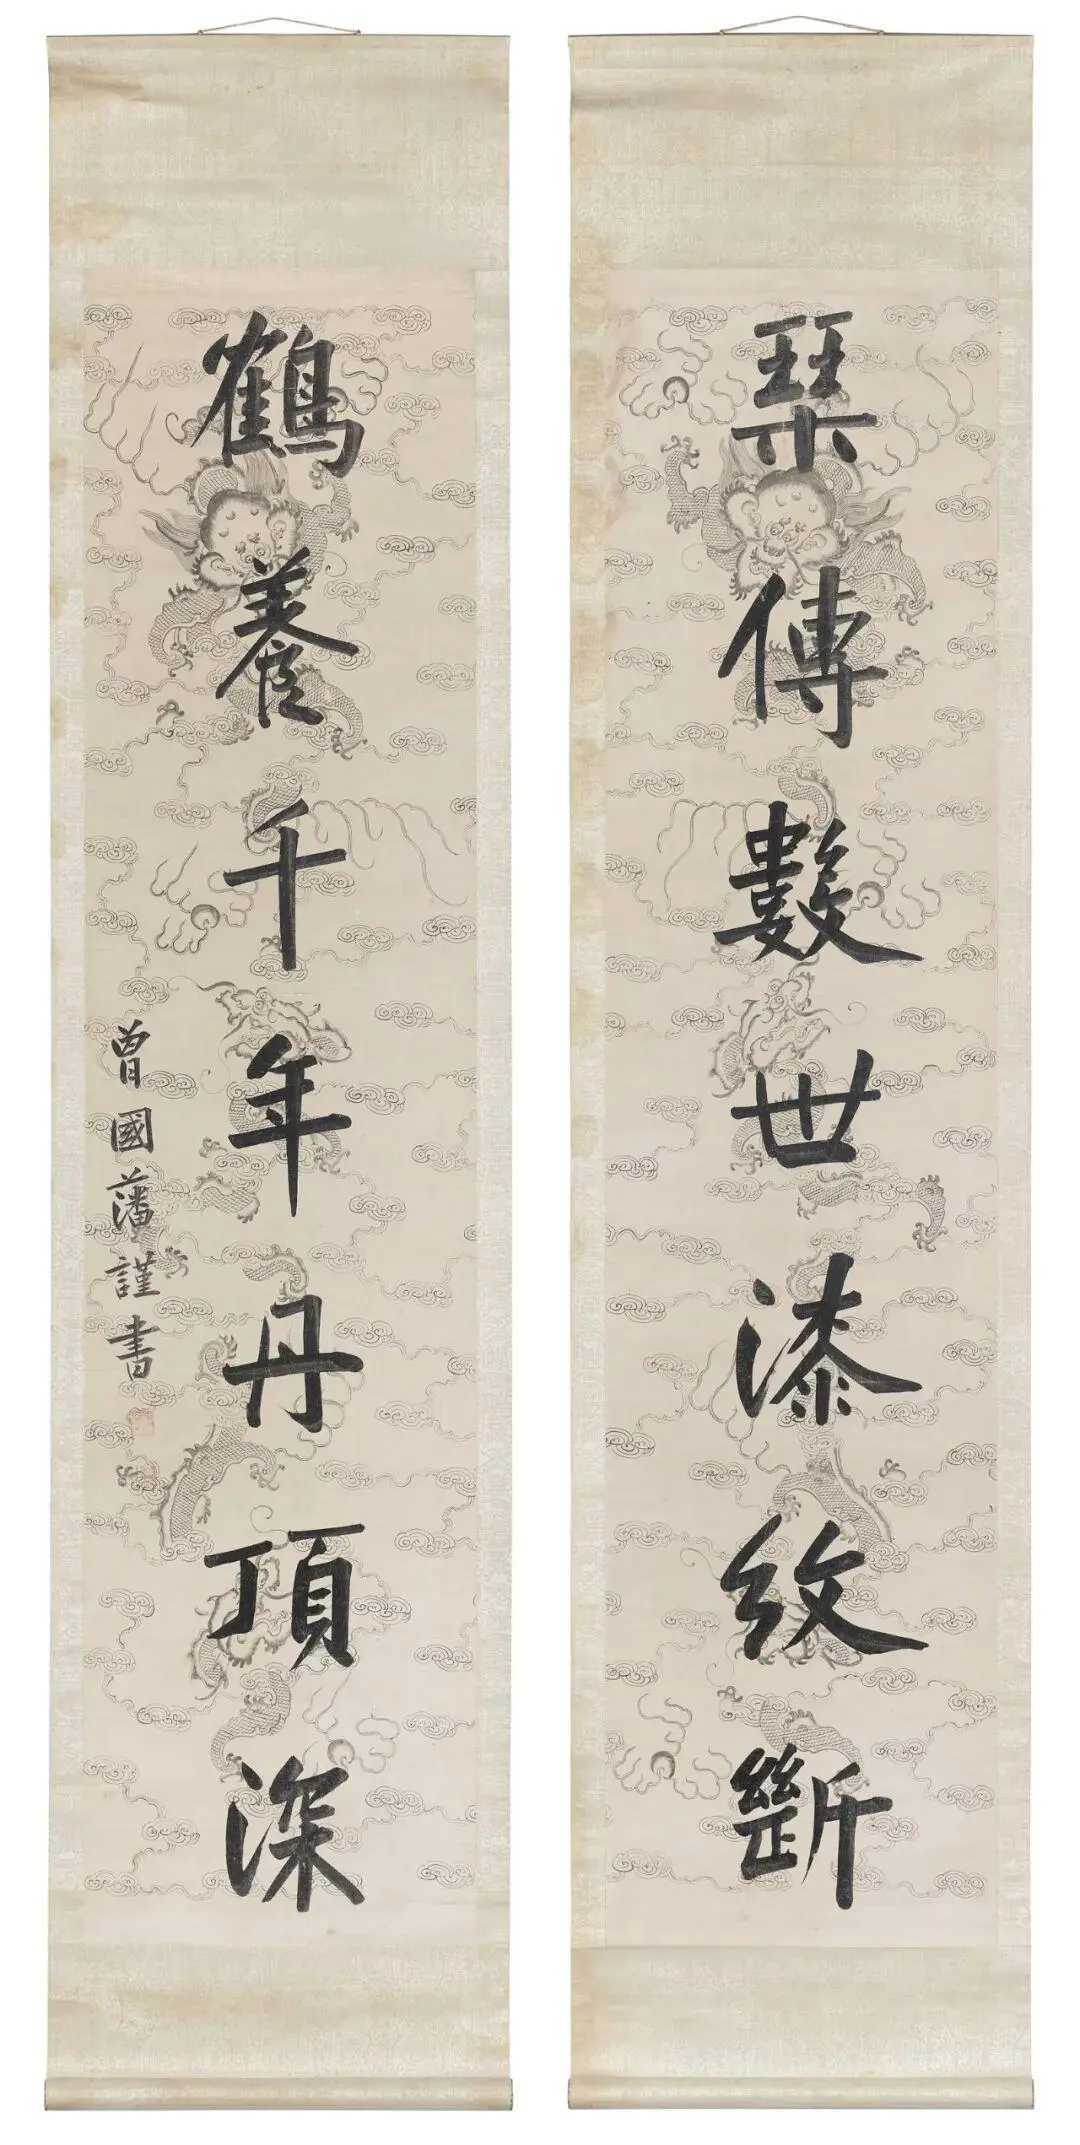 琹傳數世漆紋斷
鶴養千年丹頂深
曾國藩謹書